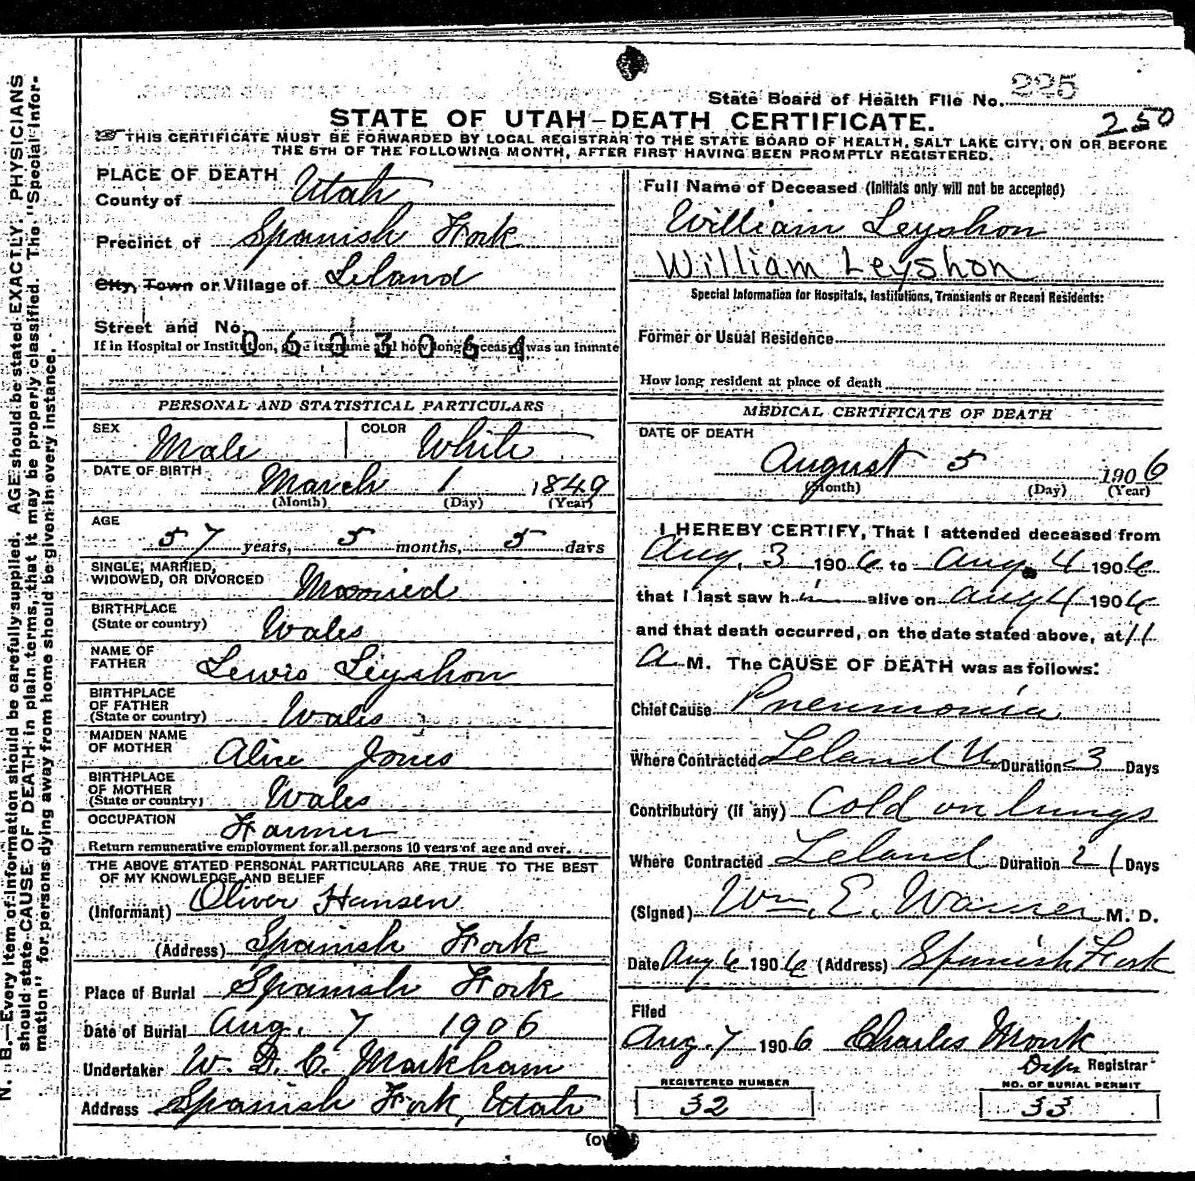 State Board of Health File No. 225
250
STATE OF UTAH-DEATH CERTIFICATE.
THIS CERTIFICATE MUST BE FORWARDED BY LOCAL REGISTRAR TO THE STATE BOARD OF HEALTH, SALT LAKE CITY, ON OR BEFORE
THE 5TH OF THE FOLLOWING MONTH, AFTER FIRST HAVING BEEN PROMPTLY REGISTERED.
PLACE OF DEATH
County of Utah
Precinct of Spanish Fork
City, Town or Village of Leland
Street and No.
If in Hospital or Institution, give its name and how long deceased was an inmate
0603064
PERSONAL AND STATISTICAL PARTICULARS
SEX Male COLOR White
DATE OF BIRTH March 1 1849
(Month) (Day) (Year)
AGE
57 years, 5 months, 5 days
SINGLE, MARRIED,
WIDOWED, OR DIVORCED Married
BIRTHPLACE
(State or country) Wales
NAME OF
FATHER Lewis Leyshon
BIRTHPLACE
OF FATHER
(State or country) Wales
MAIDEN NAME
OF MOTHER Alice Jones
BIRTHPLACE
OF MOTHER
(State or country) Wales
OCCUPATION Farmer
Return remunerative employment for all persons 10 years of age and over.
THE ABOVE STATED PERSONAL PARTICULARS ARE TRUE TO THE BEST
OF MY KNOWLEDGE AND BELIEF
(Informant) Oliver Hansen
(Address) Spanish Fork
Place of Burial Spanish Fork
Date of Burial Aug. 7 1906
Undertaker W. D. C. Markham
Address Spanish Fork, Utah
Full Name of Deceased (Initials only will not be accepted)
William Leyshon
William Leyshon
Special Information for Hospitals, Institutions, Transients or Recent Residents:
Former or Usual Residence
How long resident at place of death
MEDICAL CERTIFICATE OF DEATH
DATE OF DEATH
August 5 1906
(Month) (Day) (Year)
I HEREBY CERTIFY, That I attended deceased from
Aug. 3 1906 to Aug. 4 1906
that I last saw him alive on Aug 4 1906
and that death occurred, on the date stated above, at 11
A M. The CAUSE OF DEATH was as follows:
Chief Cause Pneumonia
Where Contracted Leland U. Duration 3 Days
Contributory (if any) Cold on lungs
Where Contracted Leland Duration 21 Days
(Signed) Wm. E. Warner M. D.
Date Aug 6 1906 (Address) Spanish Fork
Filed
Aug. 7 1906 Charles Monk
Dep. Registrar
REGISTERED NUMBER
32
NO. OF BURIAL PERMIT
33
N. B.—Every item of information should be carefully supplied. AGE should be stated EXACTLY. PHYSICIANS
should state CAUSE OF DEATH in plain terms, that it may be properly classified. The "Special Infor-
mation" for persons dying away from home should be given in every instance.